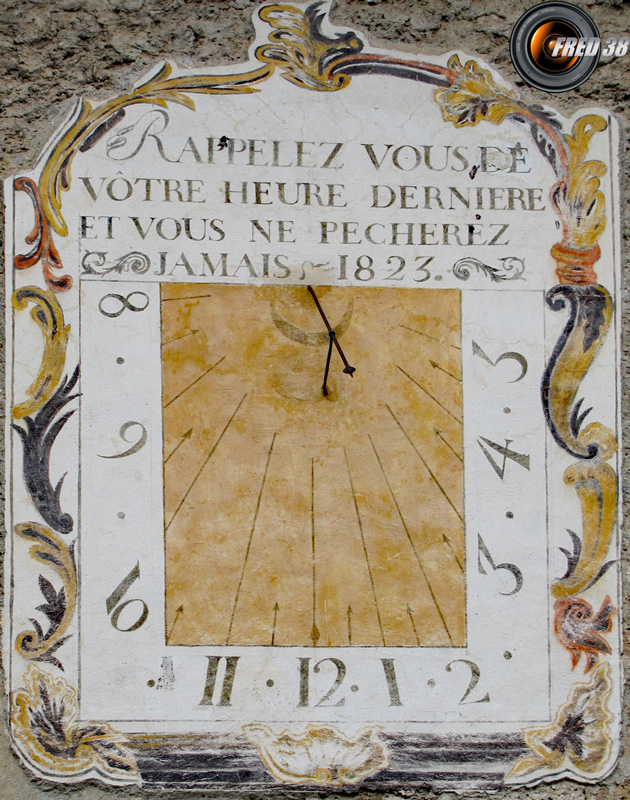 FRED 38
RAPPELEZ VOUS, DE
VÔTRE HEURE DERNIERE
ET VOUS NE PECHEREZ
JAMAIS ~ 1823.
8
5
9
4
10
3
11 · 12 · 1 · 2